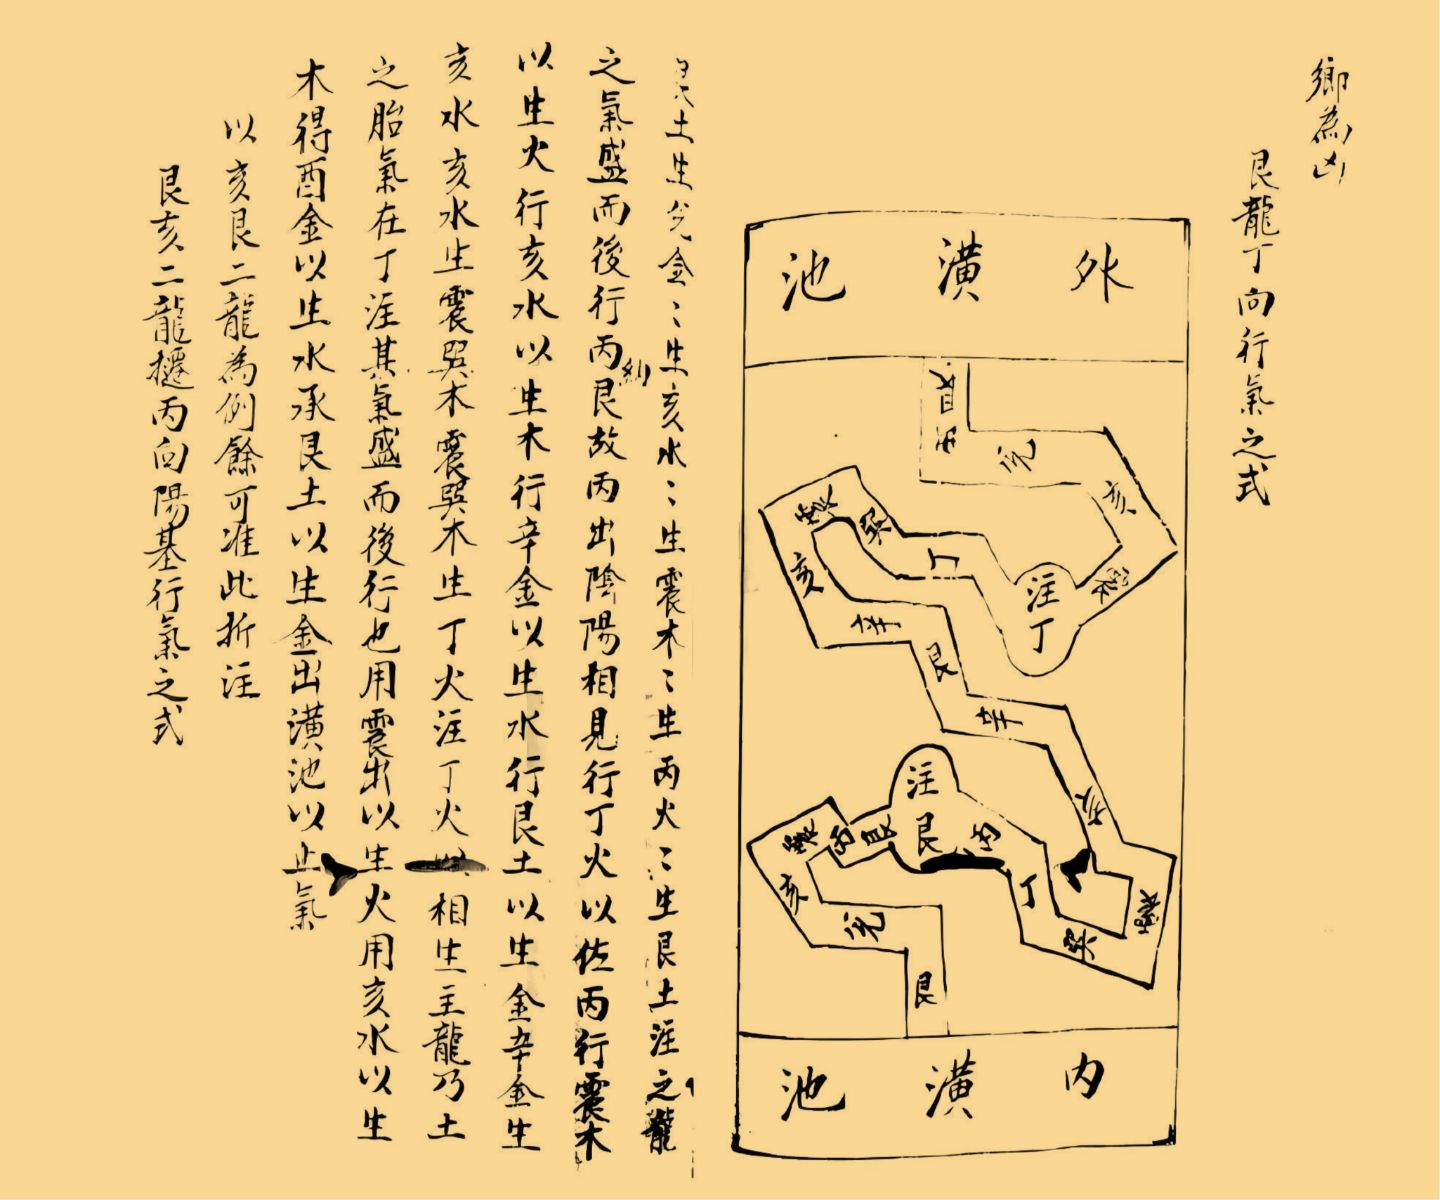 鄉為凶
艮龍丁向行氣之式
外潢池
艮
丙
兌
亥
震
注丁
丁
巽
震
亥
辛
艮
辛
亥
震
巽
丁
丙
注艮
艮
丙
震
亥
兌
艮
內潢池
艮土生兌金〻生亥水〻生震木〻生丙火〻生艮土注之龍
之氣盛而後行丙糾艮故丙出陰陽相見行丁火以佐丙行震木
以生火行亥水以生木行辛金以生水行艮土以生金辛金生
亥水亥水生震巽木震巽木生丁火注丁火相生主龍乃土
之胎氣在丁注其氣盛而後行也用震出以生火用亥水以生
木得酉金以生水承艮土以生金出潢池以止氣
以亥艮二龍為例餘可准此折注
艮亥二龍櫏丙向陽基行氣之式